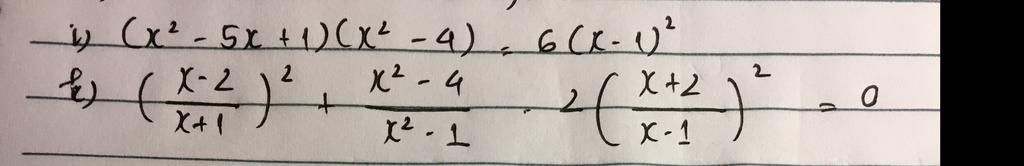 i) (x² - 5x + 1)(x² - 4) = 6(x - 1)²
k) ((x-2)/(x+1))² + (x² - 4)/(x² - 1) - 2((x+2)/(x-1))² = 0